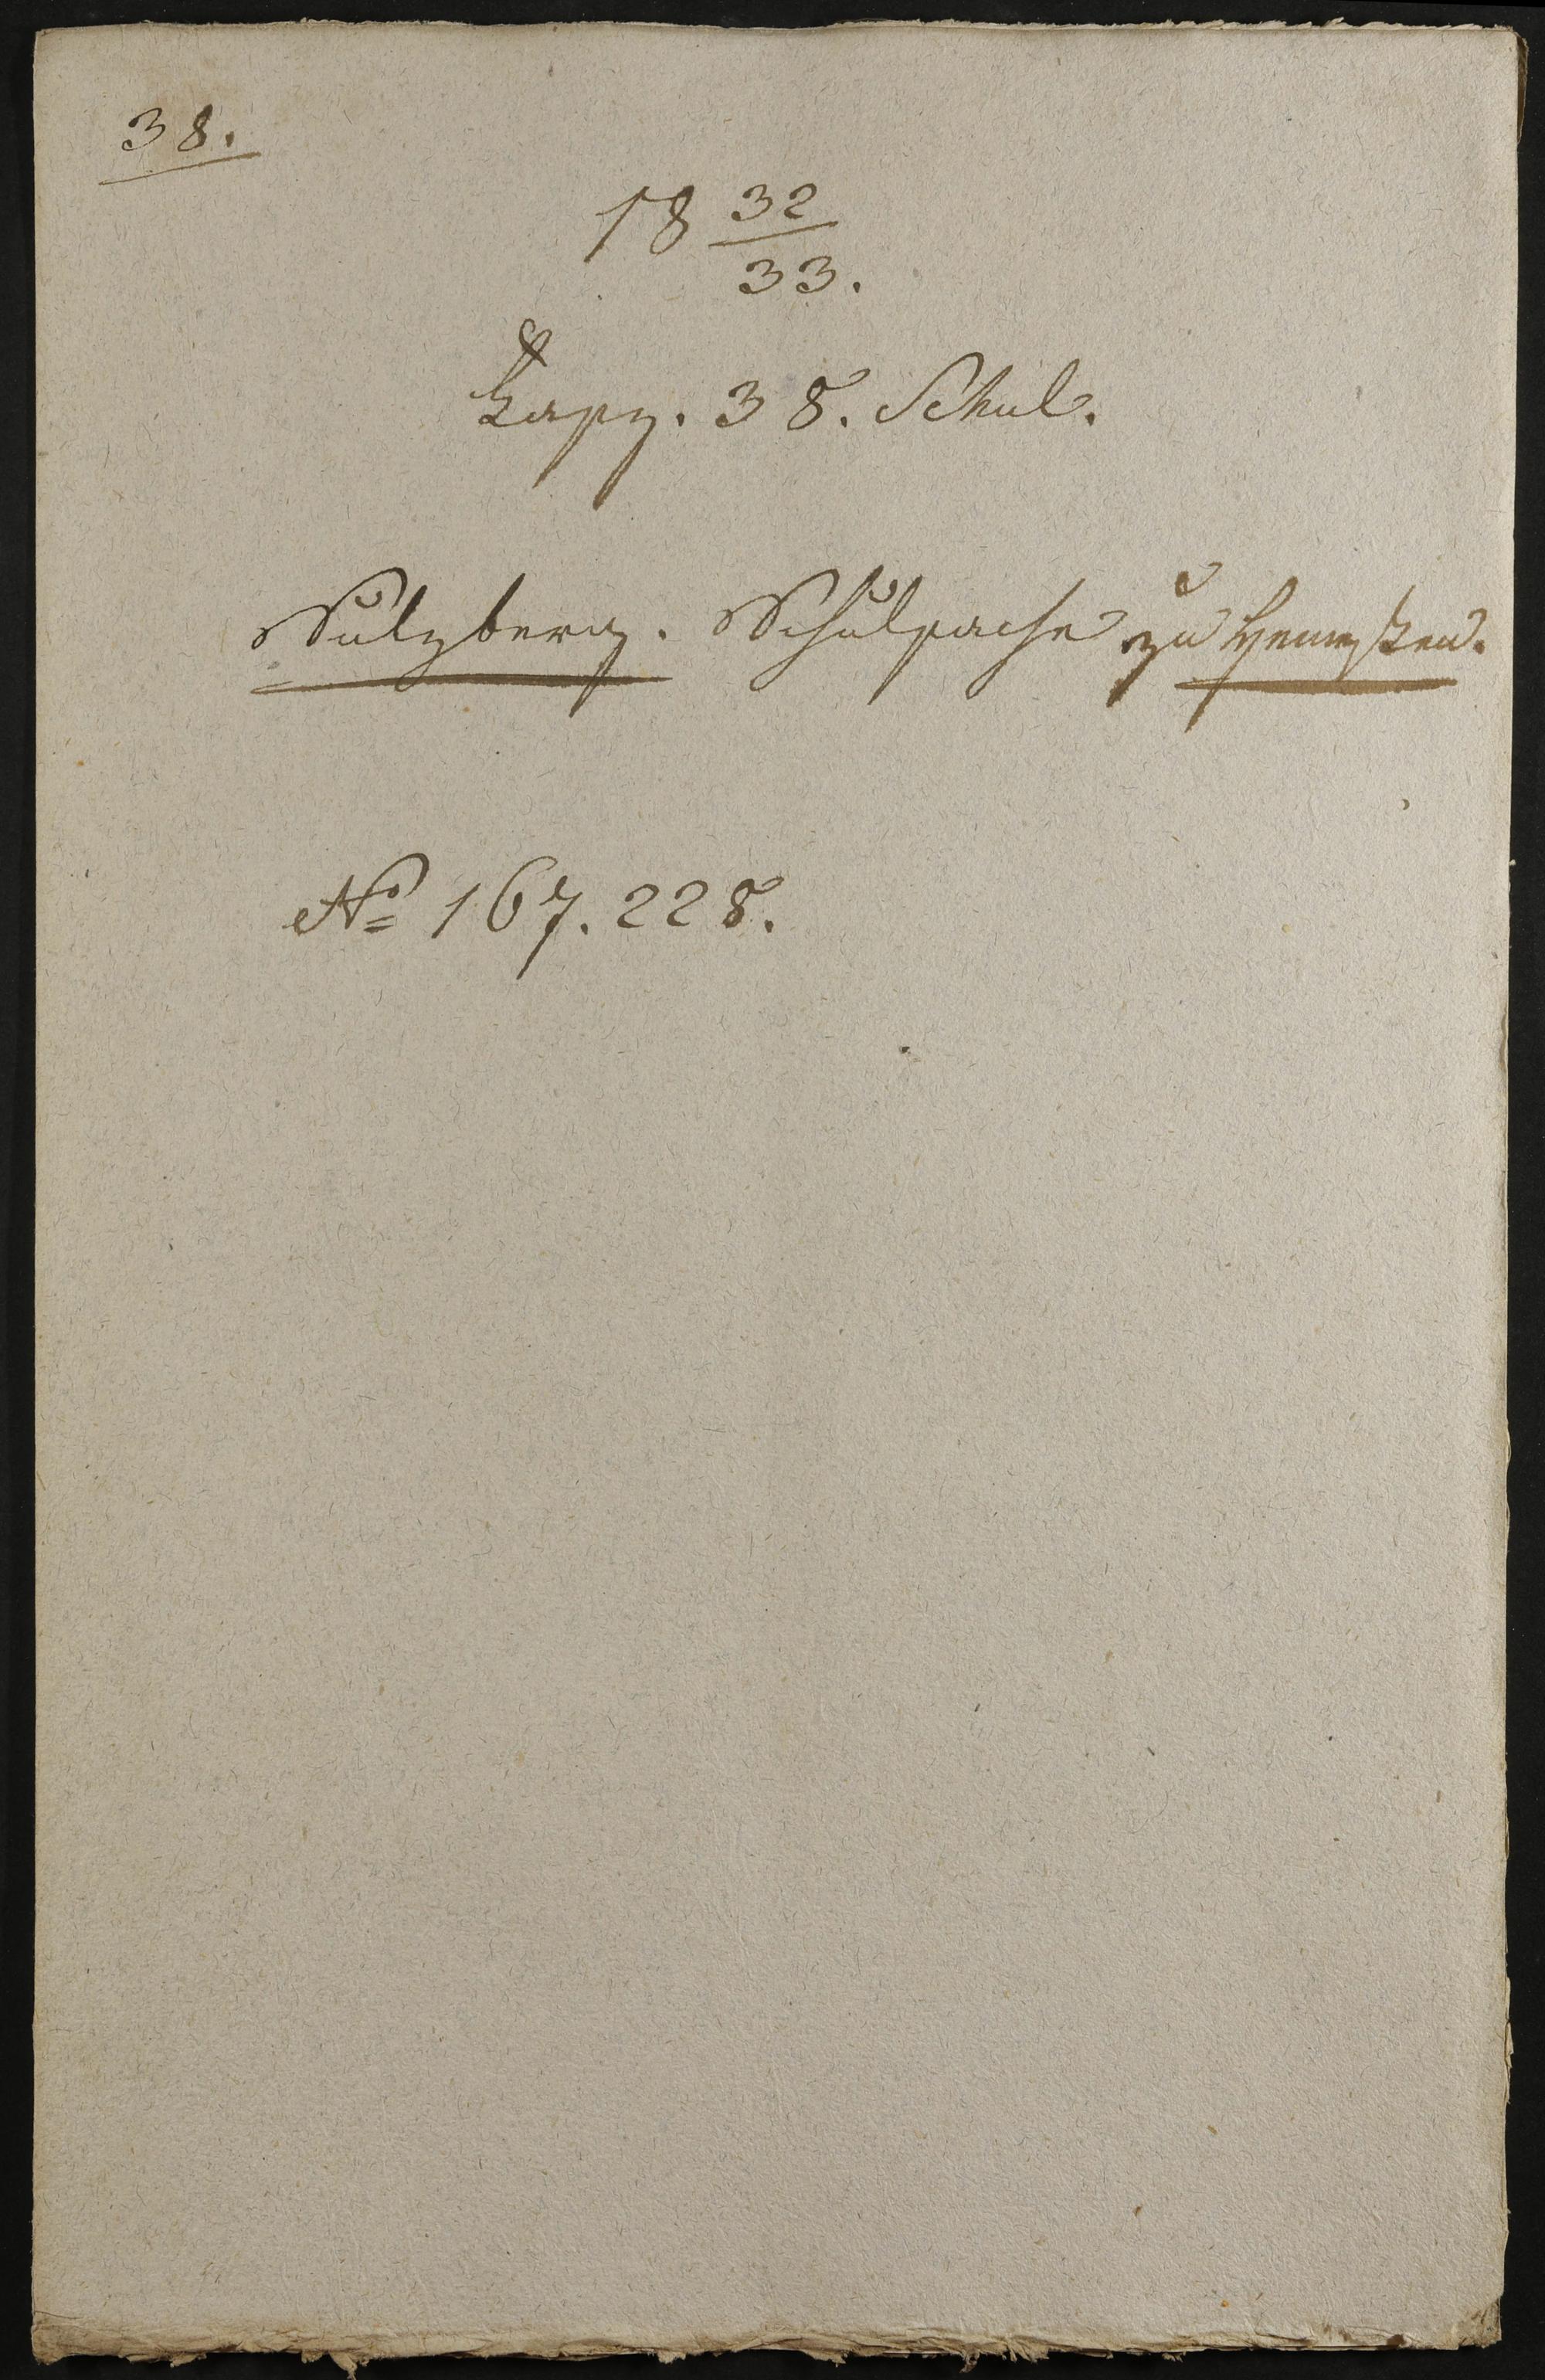 38.
18 32/33.
Fasz. 38. Schul.
Sulzberg. Schulsache zu
No 167. 228.